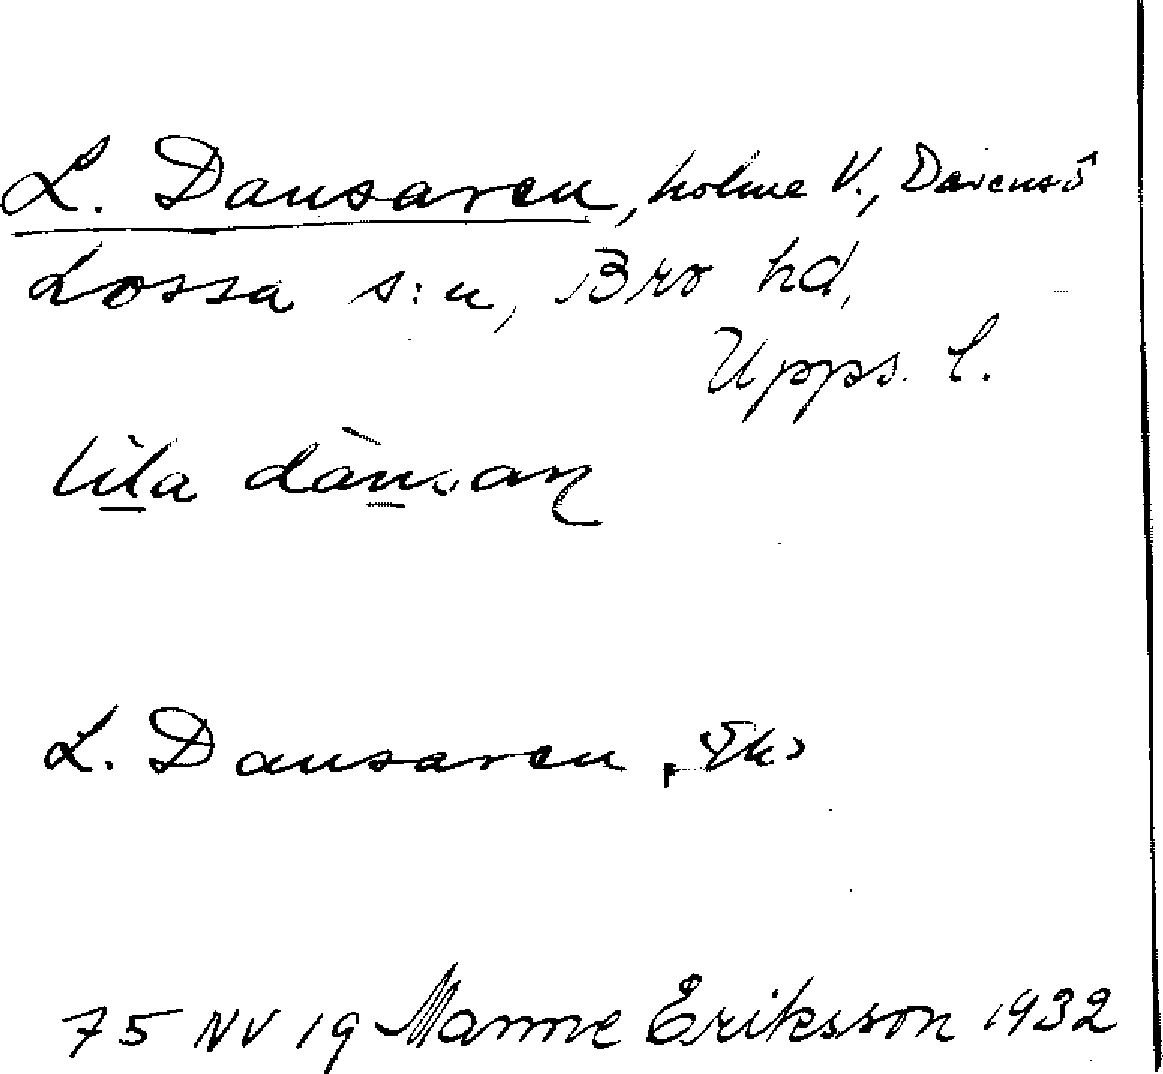 L. Dansaren, holme V., Dävensö
Lossa s:n, Bro hd,
Upps. l.
lìla dànsan
L. Dansaren, Ek>
75 NV 19 Manne Eriksson 1932